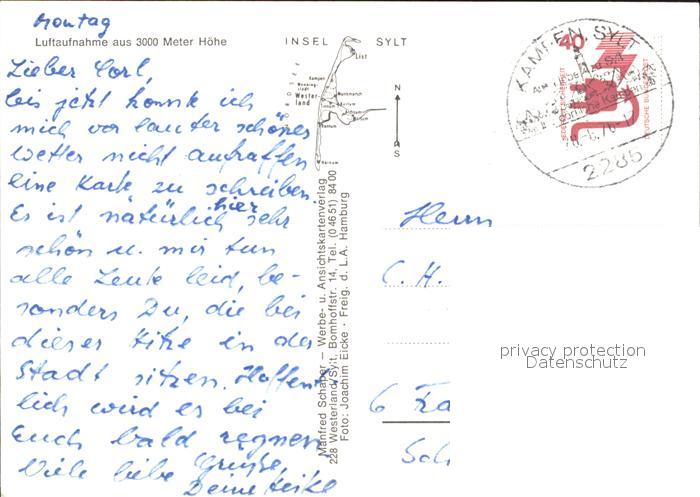 Montag
Luftaufnahme aus 3000 Meter Höhe
INSEL SYLT
Lieber Carl,
bis jetzt konnte ich
mich vor lauter schönes
Wetter nicht aufraffen
eine Karte zu schreiben.
Es ist natürlich hier sehr
schön u. mir tun
alle Leute leid, be-
sonders Du, die bei
dieser Hitze in der
Stadt sitzen. Hoffent
lich wird es bei
Euch bald regnen
Viele liebe Grüsse,
Deine Heike
List
Kampen
Wester-
land
N
S
Manfred Schaper – Werbe- u. Ansichtskartenverlag
228 Westerland/Sylt, Bomhoffstr. 14, Tel. (04651) 8400
Foto: Joachim Eicke · Freig. d. L.A. Hamburg
KAMPEN, SYLT
2285
40
DEUTSCHE BUNDESPOST
Herrn
C. H.
6
Sch
privacy protection
Datenschutz